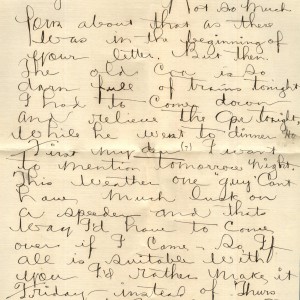 Not so much
fuss about that as there
was in the beginning of
your letter. But then
The old Coo is so
darn full of trains tonight
I had to come down
and relieve the Opr tonight,
while he went to dinner.
First my dear (?) I want
to mention tomorrow night.
This weather one "guy" can't
have much luck on
a speeder and that
way I'd have to come
over if I come - So If
all is suitable with
you I'd rather make it
Friday instead of Thurs